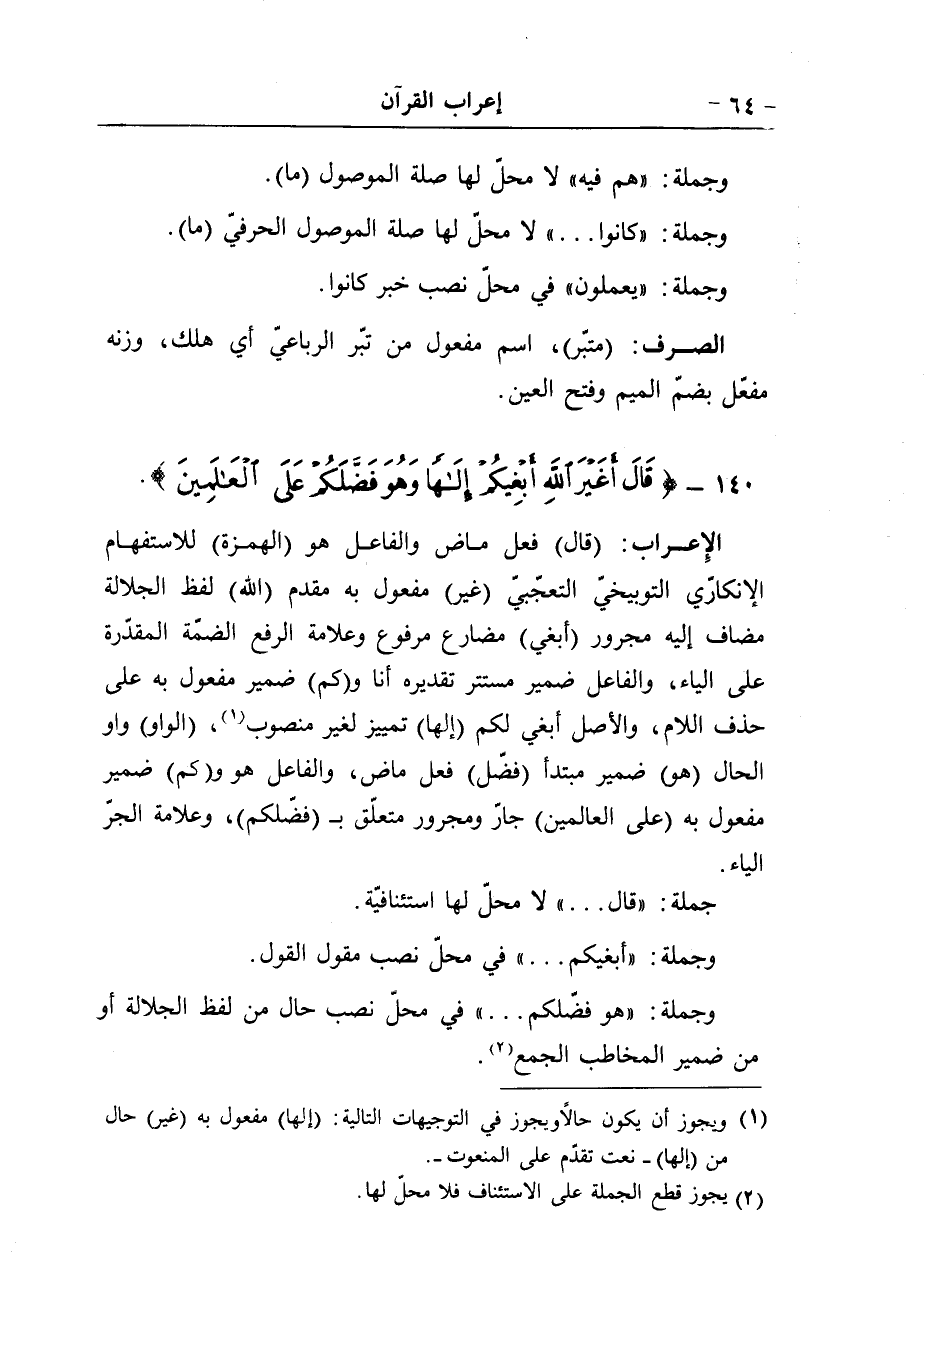 - ٦٤ - إعراب القرآن
وجملة: «هم فيه» لا محلّ لها صلة الموصول (ما).
وجملة: «كانوا...» لا محلّ لها صلة الموصول الحرفيّ (ما).
وجملة: «يعملون» في محلّ نصب خبر كانوا.
الصـرف: (متبّر)، اسم مفعول من تبّر الرباعيّ أي هلك، وزنه
مفعّل بضمّ الميم وفتح العين.
١٤٠ - ﴿ قَالَ أَغَيْرَ ٱللَّهِ أَبْغِيكُمْ إِلَـٰهًا وَهُوَ فَضَّلَكُمْ عَلَى ٱلْعَـٰلَمِينَ ﴾.
الإعـراب: (قال) فعل مـاض والفاعـل هو (الهمـزة) للاستفهـام
الإنكارّي التوبيخيّ التعجّبيّ (غير) مفعول به مقدم (الله) لفظ الجلالة
مضاف إليه مجرور (أبغي) مضارع مرفوع وعلامة الرفع الضمّة المقدّرة
على الياء، والفاعل ضمير مستتر تقديره أنا و(كم) ضمير مفعول به على
حذف اللام، والأصل أبغي لكم (إلها) تمييز لغير منصوب(١)، (الواو) واو
الحال (هو) ضمير مبتدأ (فضّل) فعل ماض، والفاعل هو و(كم) ضمير
مفعول به (على العالمين) جارّ ومجرور متعلّق بـ (فضّلكم)، وعلامة الجرّ
الياء.
جملة: «قال...» لا محلّ لها استئنافيّة.
وجملة: «أبغيكم...» في محلّ نصب مقول القول.
وجملة: «هو فضّلكم...» في محلّ نصب حال من لفظ الجلالة أو
من ضمير المخاطب الجمع(٢).
(١) ويجوز أن يكون حالاًويجوز في التوجيهات التالية: (إلها) مفعول به (غير) حال
من (إلها) - نعت تقدّم على المنعوت -.
(٢) يجوز قطع الجملة على الاستئناف فلا محلّ لها.